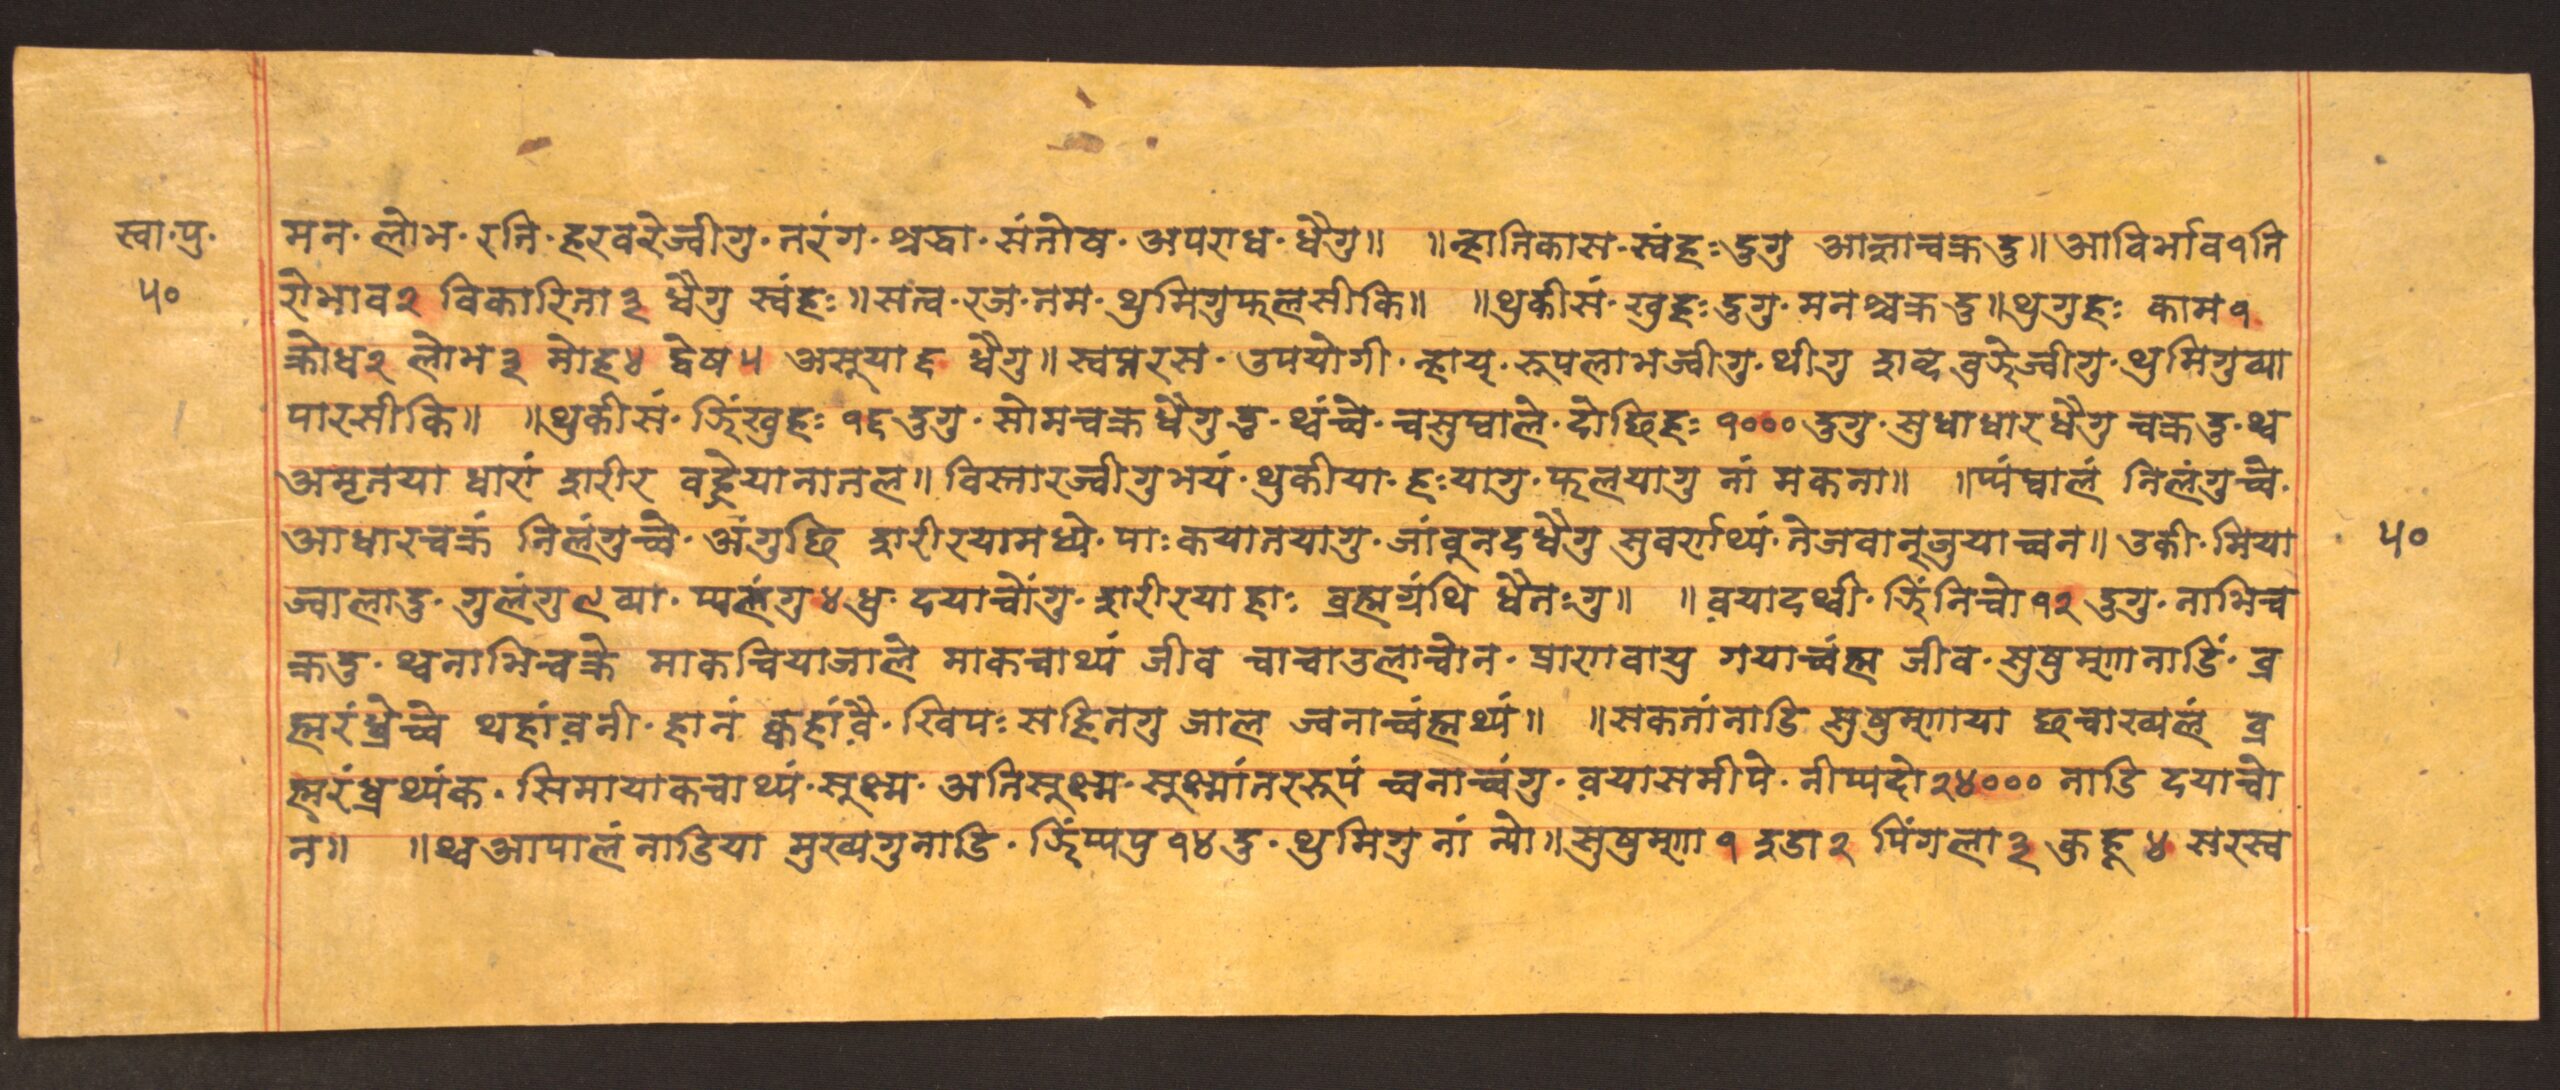 स्वा·पु·
५०
मन· लोभ· रति· हरवरेज्वीगु· तरंग· श्रद्धा· संतोष· अपराध· धैगु॥ ॥न्हानिकास·स्वंहः दुगु आज्ञाचक्रदु॥आविर्भाव१ति
रोभाव२ विकारिता३ धैगु स्वंहः॥सत्व·रज·तम·थुमिगुफलसीकि॥ ॥थुकीसं·खुहःदुगु·मनश्चक्रदु॥थुगुहः काम१
क्रोध२ लोभ३ मोह४ द्वेष५ असूया६ धैगु॥स्वप्नरस·उपयोगी·न्हाय्·रुपलाभज्वीगु·थीगु शब्द वुझेज्वीगु·थुमिगुव्या
पारसीकि॥ ॥थुकीसं·झिंखुहः १६दुगु·सोमचक्रधैगुदु·थ्वंच्वे·चसुम्वाले·दोछिहः १०००दुगु·सुधाधारधैगु चक्रदु·थ्व
अमृतया धारां शरीर वढ्रेयानातल॥विस्तारज्वीगुभयं·थुकीया·हःयागु·फलयागु नां मकना॥ ॥प्यंम्वालं निलंगुच्वे·
आधारचक्रं निलंगुच्वे·अंगुछि शरीरयामध्ये·पाःकयातयागु·जांवूनदधैगु सुवर्णथ्यं·तेजवानूजुयाच्वन॥उकी·मिया
ज्वालादु·गुलंगु९व्या·प्यलंगु४ध्व·दयाच्वोंगु·शरीरयाहाः व्रह्मग्रंथि धैतःगु॥ ॥व़यादथ्वी·झिंनिचो१२दुगु·नाभिच
क्रदु·थ्वनाभिचक्रे माकचियाजाले माकचाथ्यं जीव चाचाउलाच्वोन·प्राणवायु गयाच्वंह्म जीव·सुषुम्णानाडिं·व्र
ह्मरंध्रेच्वे थहांव़नी·हानं क्वहांव़ै·खिपः सहितगु जाल ज्वनाच्वंह्मथ्यं॥ ॥सकतांनाडि सुषुम्णाया छचाख्यलं व्र
ह्मरंध्रथ्यंक·सिमायाकचाथ्यं·सूक्ष्म·अतिसूक्ष्म·सूक्ष्मांतररुपं च्वनाच्वंगु·व़यासमीपे·नीप्यदो२४००० नाडि दयाच्वो
न॥ ॥थ्वआपालं नाडिया मुख्यगुनाडि·झिंप्यपु१४दु·थुमिगु नां न्यो॥सुषुम्णा१इडा२ पिंगला३ कुहू४ सरस्व
५०